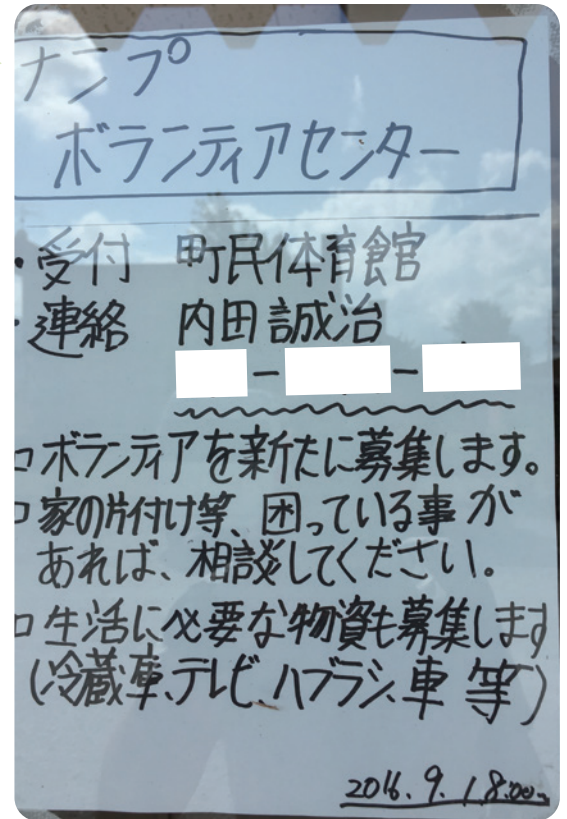 ナンプ
ボランティアセンター
・受付 町民体育館
・連絡 内田誠治
□ボランティアを新たに募集します。
□家の片付け等、困っている事が
あれば、相談してください。
□生活に必要な物資も募集します
(冷蔵庫、テレビ、ハブラシ、車 等)
2016.9.1 8:00~